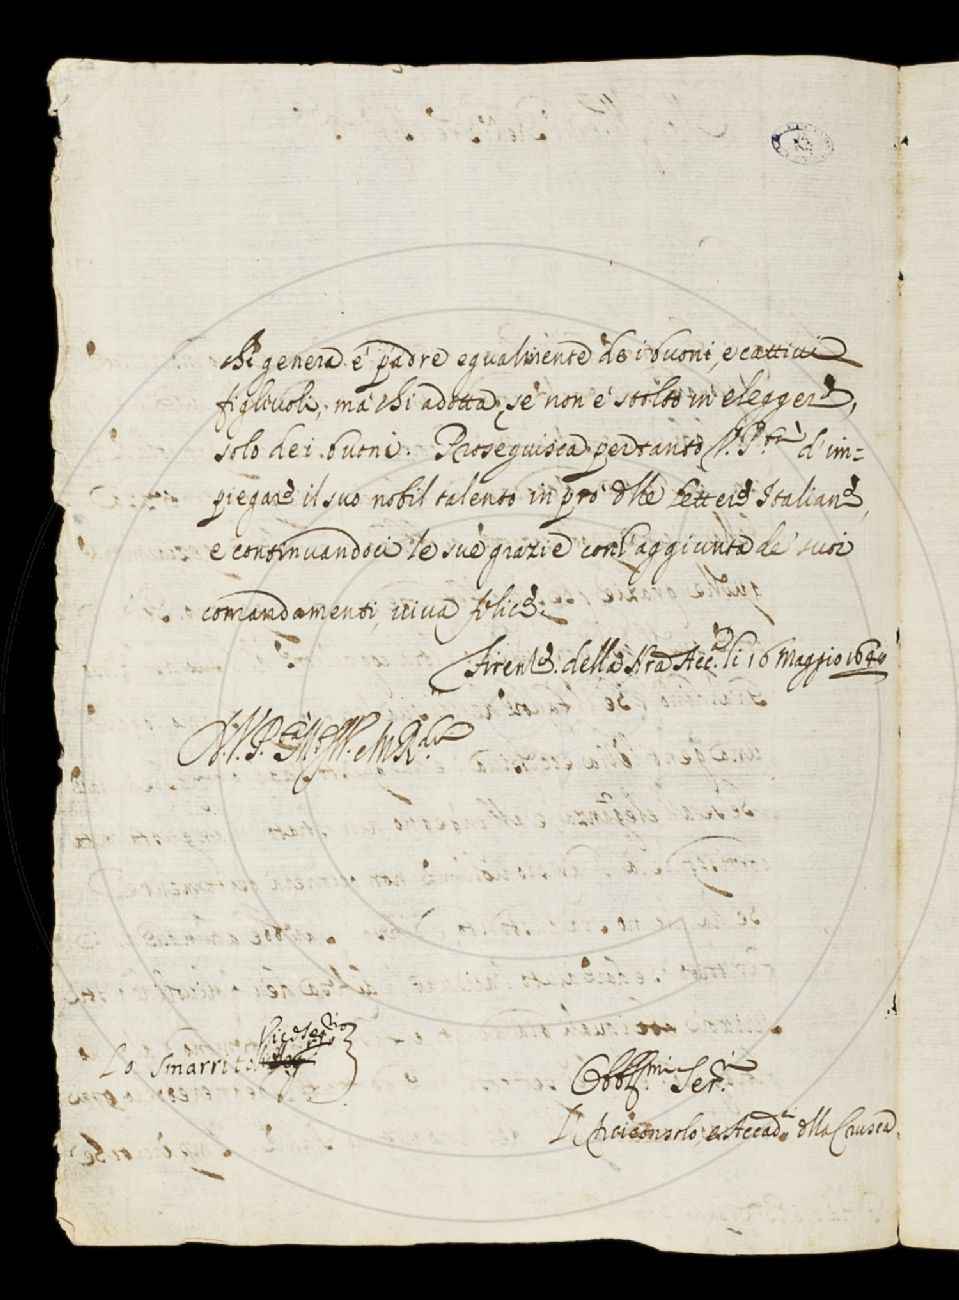 chi genera é padre egualmente de i buoni, e cattiui
figliuoli, ma chi adotta, se non é stolto in eleggere,
solo de i buoni. Proseguisca pertanto V. P.tà d'im=
piegare il suo nobil talento in pro dlle Lettere Italiane,
e continuandoci le sue grazie con l'aggiunta de' suoi
comandamenti, uiua felice.
Firenze. della Nra Acc.a li 16 Maggio 1640
D. V. P.tà M. R.da
Lo Smarrito Vice Seg.rio
Obb.mi Ser.i
L'Arciconsolo, e Accad.i dlla Crusca